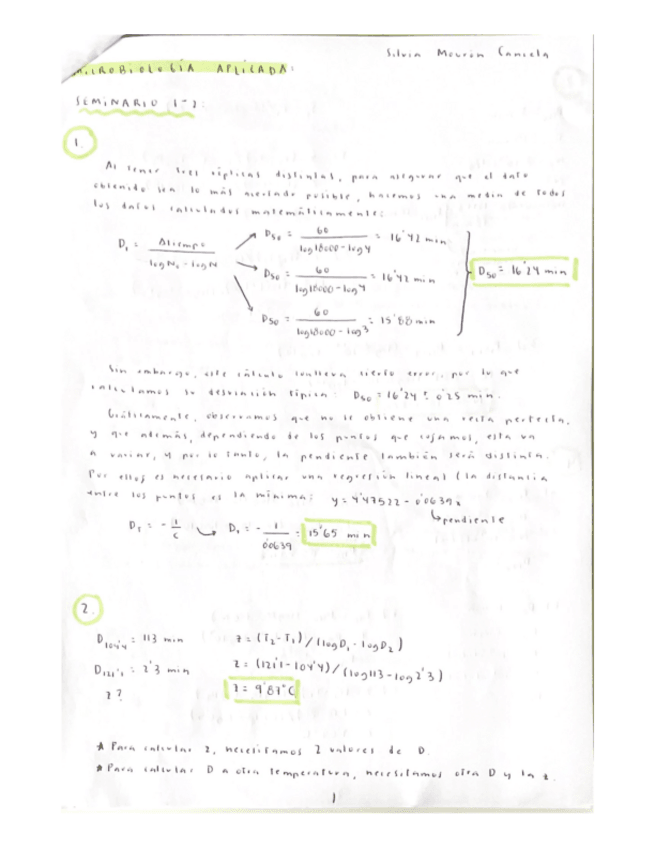 Silvia Mourón Caniela
MICROBIOLOGÍA APLICADA:
SEMINARIO (1-2):
1.
Al tener tres réplicas distintas, para asegurar que el dato
obtenido sea lo más acertado posible, hacemos una media de todos
los datos calculados matemáticamente:
Dₜ = Δtiempo / logN₀ - logN
D₅₀ = 60 / log18000 - log4 = 16'42 min
D₅₀ = 60 / log18000 - log4 = 16'42 min
D₅₀ = 60 / log18000 - log3 = 15'88 min
D₅₀ = 16'24 min
Sin embargo, este cálculo conlleva cierto error, por lo que
calculamos su desviación típica: D₅₀ = 16'24 ± 0'25 min.
Gráficamente, observamos que no se obtiene una recta perfecta,
y que además, dependiendo de los puntos que cojamos, esta va
a variar, y por lo tanto, la pendiente también será distinta.
Por ellos es necesario aplicar una regresión lineal (la distancia
entre los puntos es la mínima: y = 4'47522 - 0'0639x
↳ pendiente
Dₜ = - 1/c ↪ Dₜ = - 1/0'0639 = 15'65 min
2.
D₁₀₄'₄ = 113 min
z = (T₂ - T₁) / (logD₁ - logD₂)
D₁₂₁'₁ = 2'3 min
z = (121'1 - 104'4) / (log113 - log2'3)
z?
z = 9'87°C
* Para calcular z, necesitamos 2 valores de D.
* Para calcular D a otra temperatura, necesitamos otra D y la z.
1